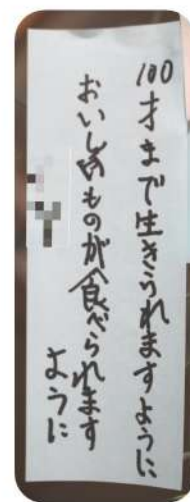 100才まで生きられますように
おいしいものが食べられます
ように